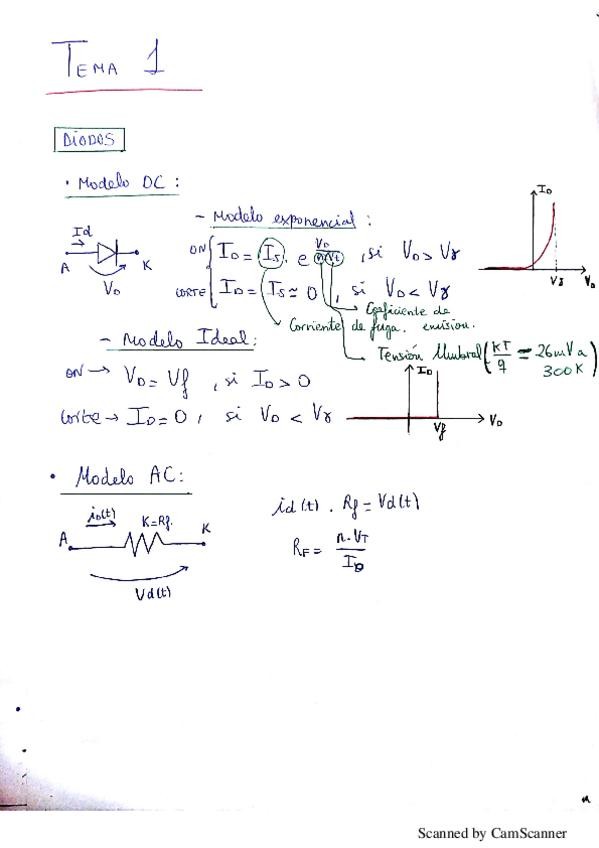 TEMA 1
DIODOS
· Modelo DC:
- Modelo exponencial:
Id
A
K
VD
ON
ID = IS · e^(VD/(n·Vt)), si VD > Vγ
CORTE
ID = IS ≃ 0, si VD < Vγ
ID
Vγ
VD
Coeficiente de emisión.
Corriente de fuga.
Tensión Umbral (kT/q = 26mV a 300K)
- Modelo Ideal:
ON → VD = Vf, si ID > 0
Corte → ID = 0, si VD < Vγ
ID
Vf
VD
· Modelo AC:
iD(t)
A
K=Rf.
K
Vd(t)
id(t) · Rf = Vd(t)
RF = n·VT/ID
Scanned by CamScanner